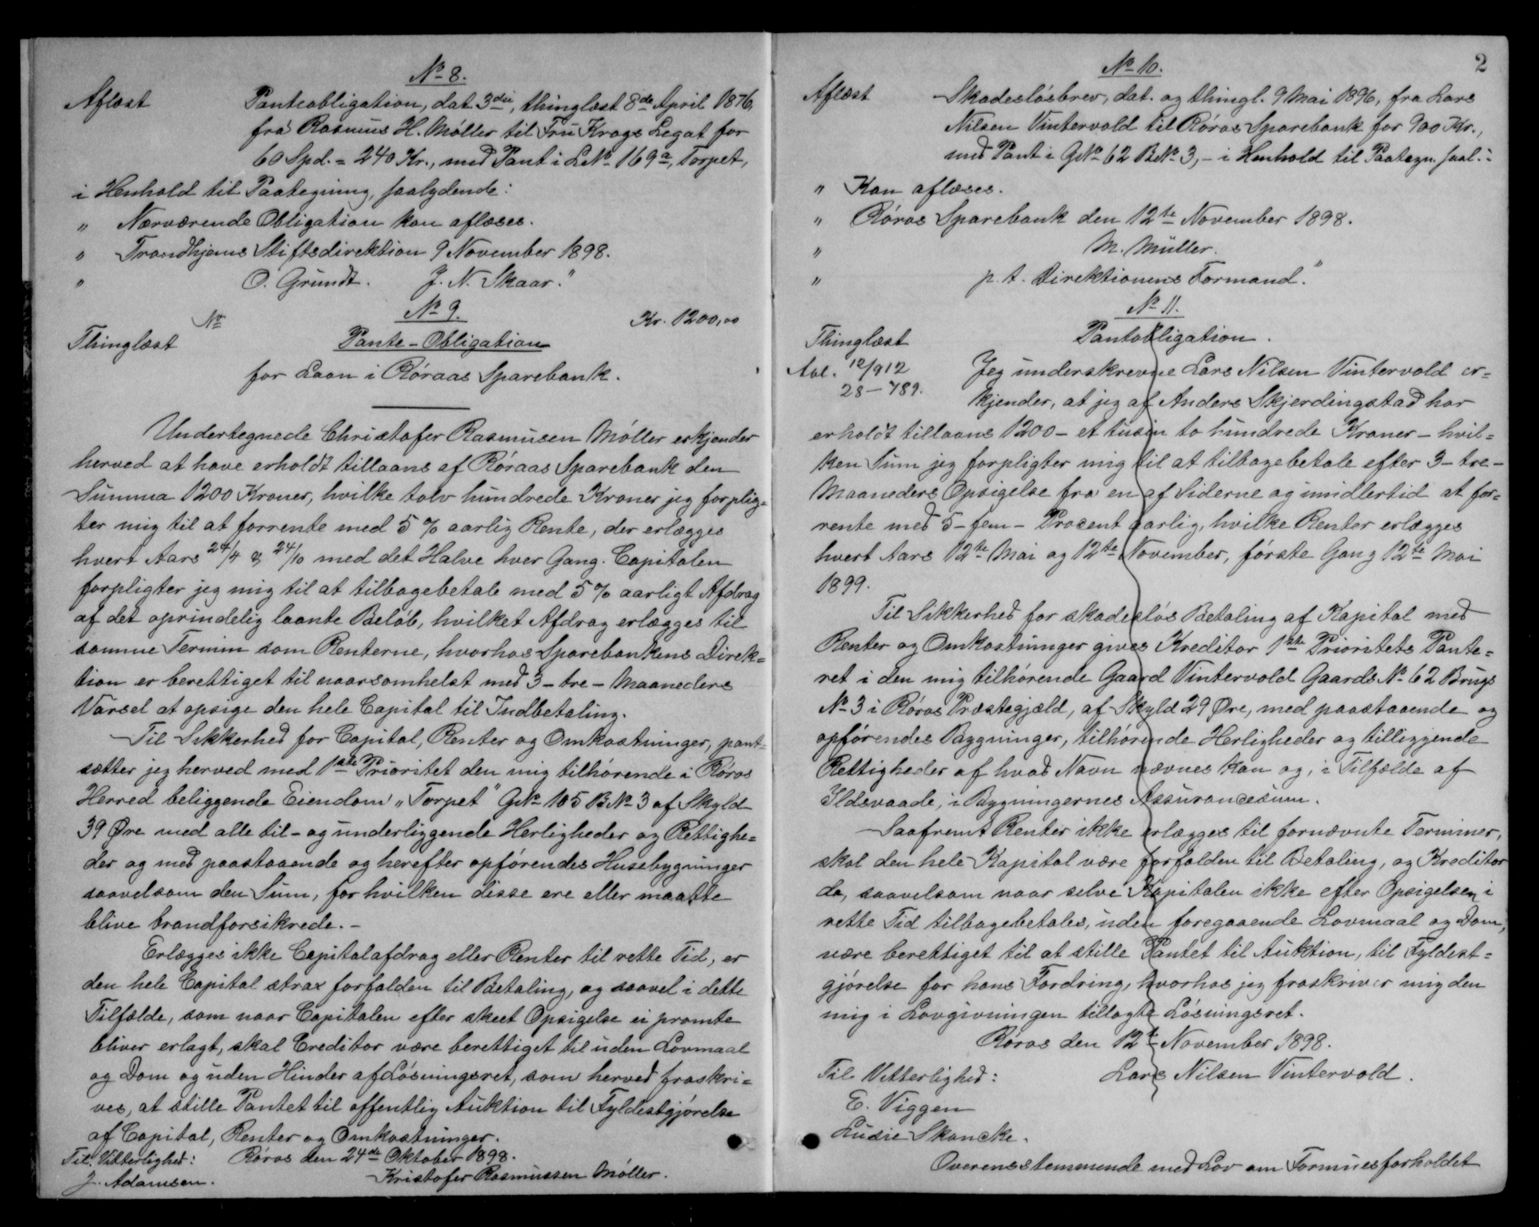 No 8.
Aflæst Panteobligation, dat. 3die, thinglæst 8de April 1876,
fra Rasmus H. Møller til Fru Krogs Legat for
60 Spd. = 240 Kr., med Pant i LNo 169a, Torpet,
i Henhold til Paategning, saalydende:
„ Nærværende Obligation kan aflæses.
„ Trondhjems Stiftsdirektion 9 November 1898.
„ O. Grundt. J. N. Skaar."
No 9.
No Kr. 1200,00
Thinglæst Pante-Obligation
for Laan i Røraas Sparebank.
Undertegnede Christofer Rasmusen Møller erkjender
herved at have erholdt tillaans af Røraas Sparebank den
Summa 1200 Kroner, hvilke tolv hundrede Kroner jeg forplig=
ter mig til at forrente med 5 % aarlig Rente, der erlægges
hvert Aars 24/4 & 24/10 med det Halve hver Gang. Capitalen
forpligter jeg mig til at tilbagebetale med 5 % aarligt Afdrag
af det oprindelig laante Beløb, hvilket Afdrag erlægges til
samme Termin som Renterne, hvorhos Sparebankens Direk=
tion er berettiget til naarsomhelst med 3 - tre - Maaneders
Varsel at opsige den hele Capital til Indbetaling.
Til Sikkerhed for Capital, Renter og Omkostninger, pant=
sætter jeg herved med 1ste Prioritet den mig tilhørende i Røros
Herred beliggende Eiendom „Torpet" GNo 105 BNo 3 af Skyld
39 Øre med alle til- og underliggende Herligheder og Rettighe=
der og med paastaaende og herefter opførendes Husebygninger
saavelsom den Sum, for hvilken disse ere eller maatte
blive brandforsikrede. -
Erlægges ikke Capitalafdrag eller Renter til rette Tid, er
den hele Capital strax forfalden til Betaling, og saavel i dette
Tilfælde, som naar Capitalen efter skeet Opsigelse ei promte
bliver erlagt, skal Creditor være berettiget til uden Lovmaal
og Dom og uden Hinder af Løsningsret, som herved fraskri=
ves, at stille Pantet til offentlig Auktion til Fyldestgjørelse
af Capital, Renter og Omkostninger.
Til Vitterlighed: Røros den 24de Oktober 1898.
J. Adamsen. Kristofer Rasmussen Møller.
2
No 10.
Aflæst Skadesløsbrev, dat. og thingl. 9 Mai 1896, fra Lars
Nilsen Vintervold til Røros Sparebank for 900 Kr.,
med Pant i GNo 62 BNo 3, - i Henhold til Paategn. saal.:
„ Kan aflæses.
„ Røros Sparebank den 12te November 1898.
„ M. Müller.
„ p. t. Direktionens Formand."
No 11.
Thinglæst Pantobligation.
Avl. 12/9 12 Jeg underskrevne Lars Nilsen Vintervold er=
28 - 789. kjender, at jeg af Anders Skjerdingstad har
erholdt tillaans 1200 - et tusin to hundrede Kroner - hvil=
ken Sum jeg forpligter mig til at tilbagebetale efter 3 - tre -
Maaneders Opsigelse fra en af Siderne og imidlertid at for=
rente med 5 - fem - Procent aarlig, hvilke Renter erlægges
hvert Aars 12te Mai og 12te November, første Gang 12te Mai
1899.
Til Sikkerhed for skadesløs Betaling af Kapital med
Renter og Omkostninger gives Kreditor 1ste Prioritets Pante=
ret i den mig tilhørende Gaard Vintervold Gaards No 62 Brugs
No 3 i Røros Præstegjæld, af Skyld 29 Øre, med paastaaende og
opførendes Bygninger, tilhørende Herligheder og tilliggende
Rettigheder af hvad Navn nævnes kan og, i Tilfælde af
Ildsvaade, i Bygningernes Assurancesum.
Saafremt Renter ikke erlægges til fornævnte Terminer,
skal den hele Kapital være forfalden til Betaling, og Kreditor
da, saavelsom naar selve Kapitalen ikke efter Opsigelsen i
rette Tid tilbagebetales, uden foregaaende Lovmaal og Dom,
være berettiget til at stille Pantet til Auktion, til Fyldest=
gjørelse for hans Fordring, hvorhos jeg fraskriver mig den
mig i Lovgivningen tillagte Løsningsret.
Røros den 12te November 1898.
Til Vitterlighed: Lars Nilsen Vintervold.
E. Viggen
Ludie Skancke.
Overensstemmende med Lov om Formuesforholdet